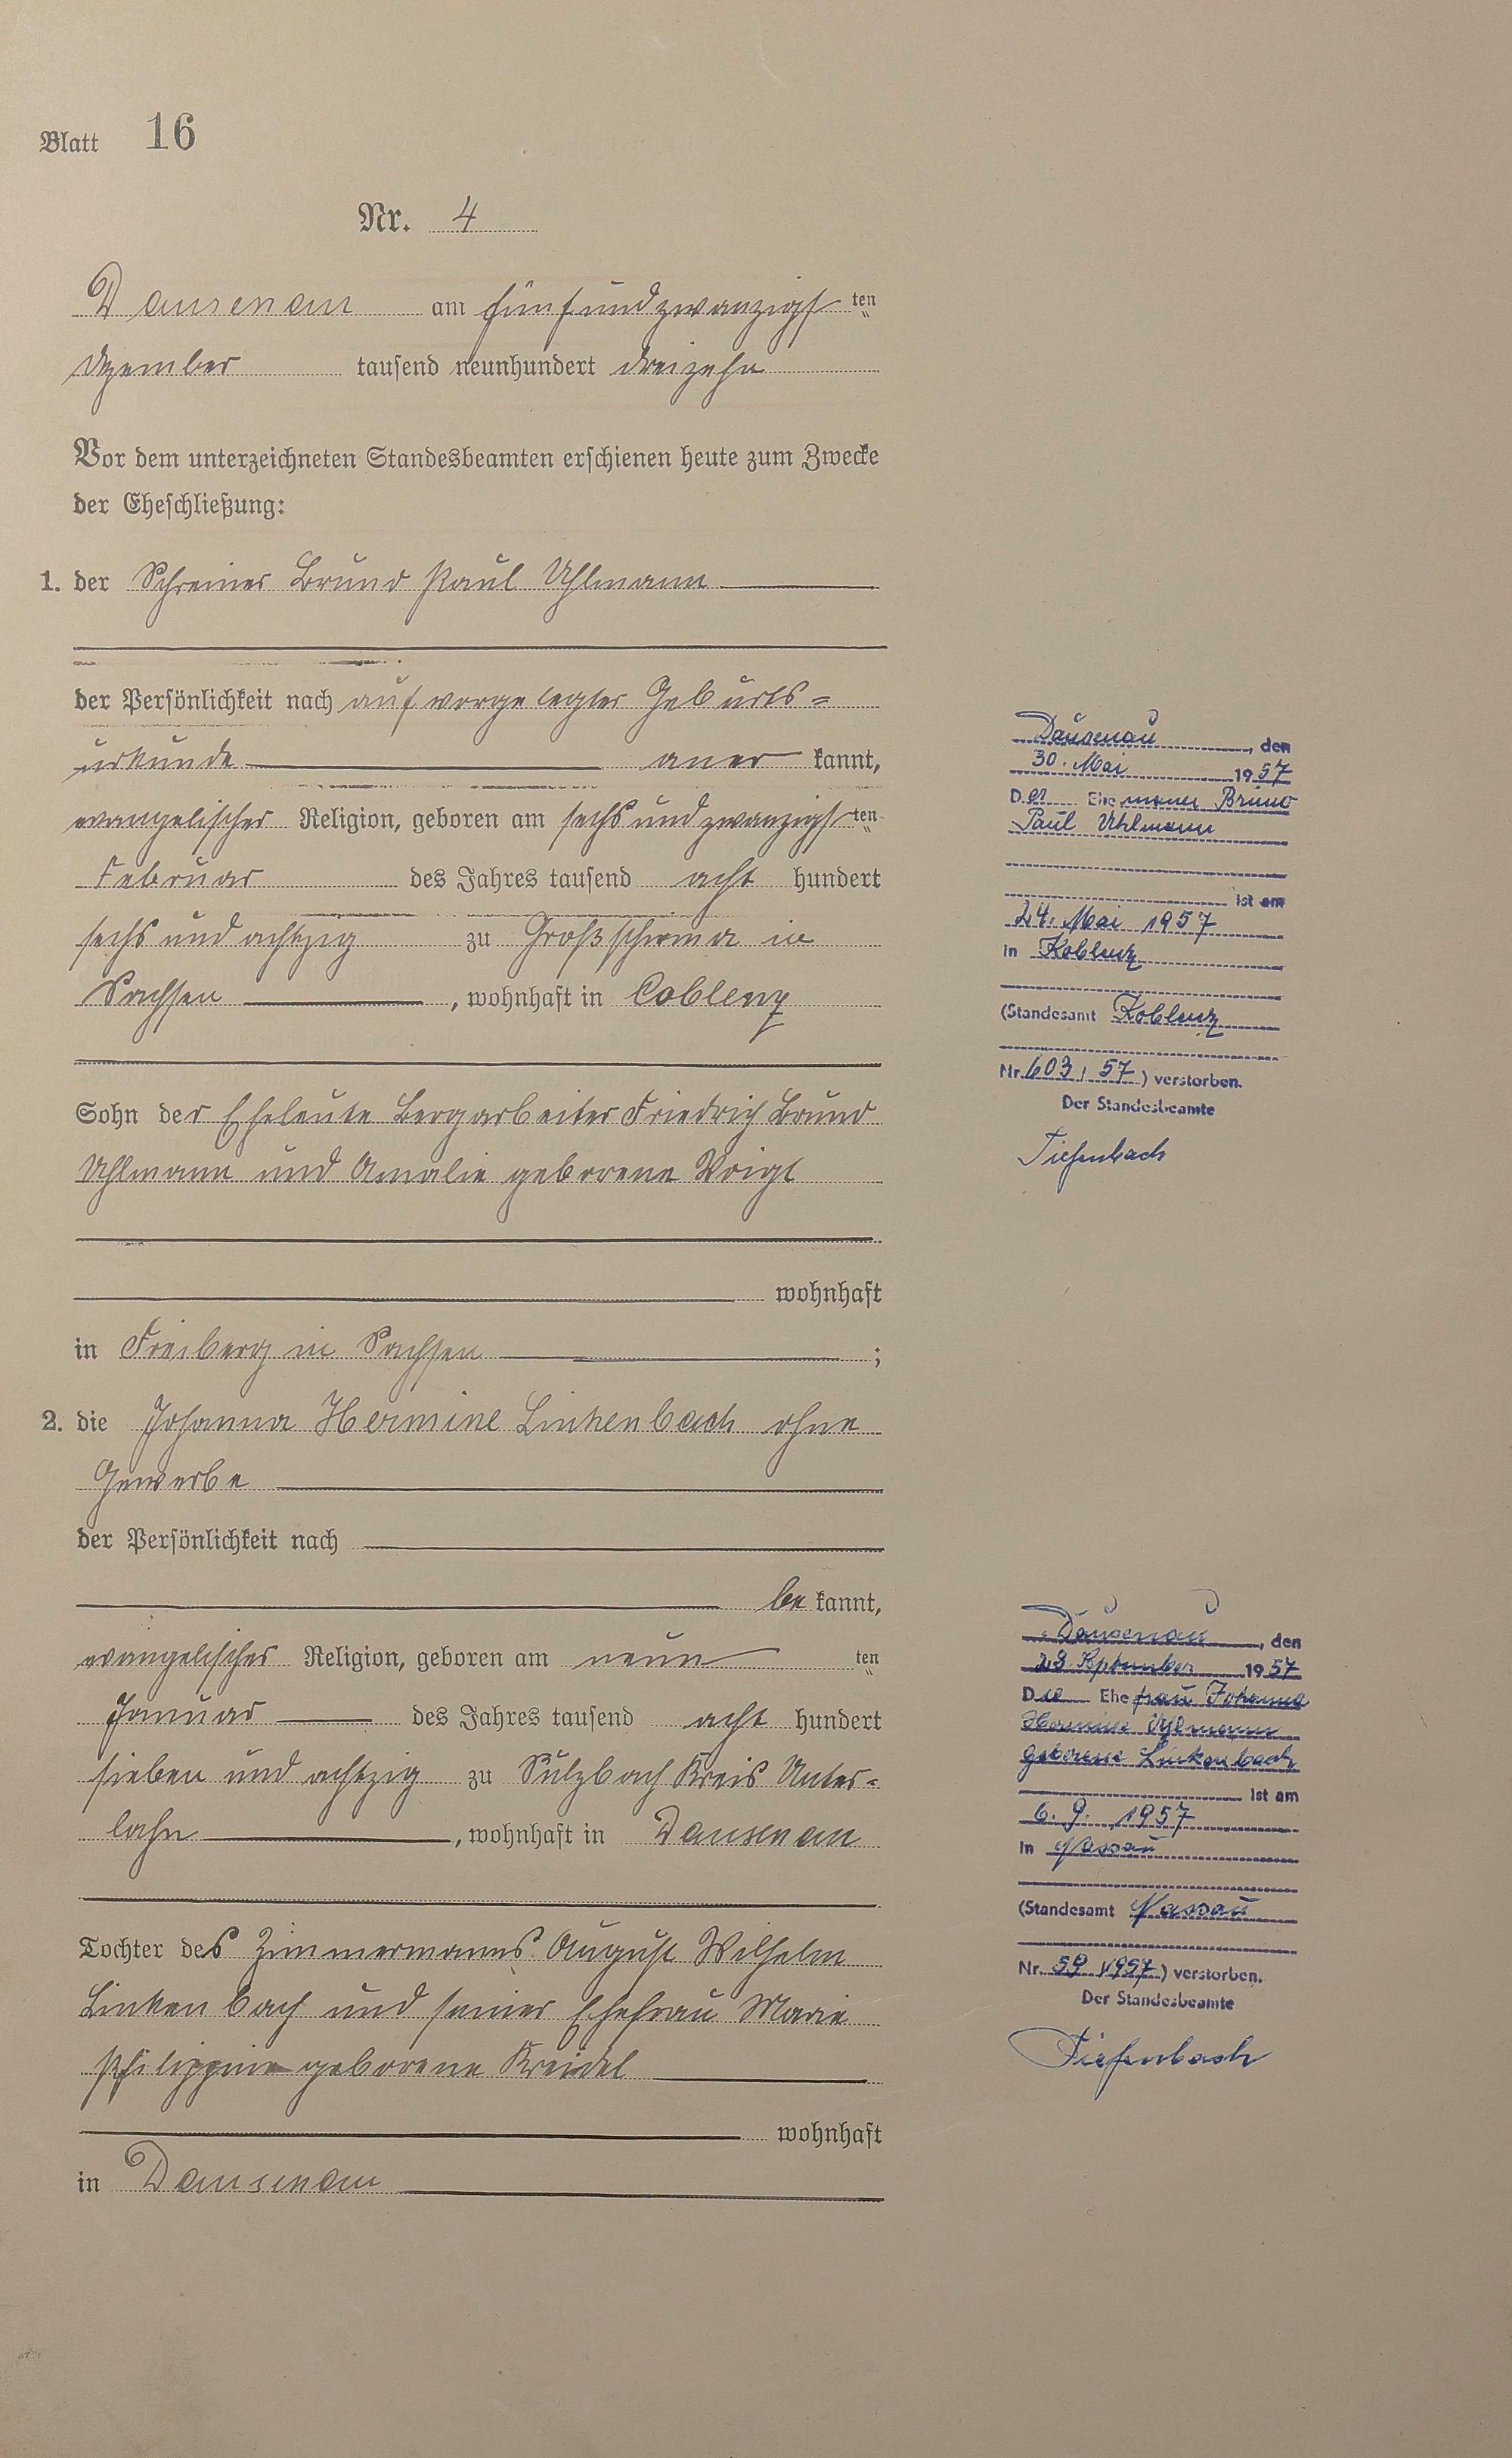 Blatt 16
Nr. 4
Dausenau am fünfundzwanzigsten
Dezember tausend neunhundert dreizehn
Vor dem unterzeichneten Standesbeamten erschienen heute zum Zwecke
der Eheschließung:
1. der Schreiner Bruno Paul Uhlmann
der Persönlichkeit nach auf vorgelegter Geburts=
urkunde anerkannt,
evangelischer Religion, geboren am sechsundzwanzigsten
Februar des Jahres tausend acht hundert
sechs und achtzig zu Großschirma in
Sachsen, wohnhaft in Coblenz
Sohn der Eheleute Bergarbeiter Friedrich Bruno
Uhlmann und Amalie geborene Voigt
wohnhaft
in Freiberg in Sachsen ;
2. die Johanna Hermine Linkenbach ohne
Gewerbe
der Persönlichkeit nach
bekannt,
evangelischer Religion, geboren am neunten
Januar des Jahres tausend acht hundert
sieben und achtzig zu Sulzbach Kreis Unter=
lahn, wohnhaft in Dausenau
Tochter des Zimmermanns August Wilhelm
Linkenbach und seiner Ehefrau Marie
Philippine geborene Kreidel
wohnhaft
in Dausenau
Dausenau, den
30. Mai 1957
Der Ehemann Bruno
Paul Uhlmann
ist am
24. Mai 1957
in Koblenz
(Standesamt Koblenz
Nr. 603/57) verstorben.
Der Standesbeamte
Tiefenbach
Dausenau, den
28. September 1957
Die Ehefrau Johanna
Hermine Uhlmann
geborene Linkenbach
ist am
6. 9. 1957
in Nassau
(Standesamt Nassau
Nr. 59/1957) verstorben.
Der Standesbeamte
Tiefenbach